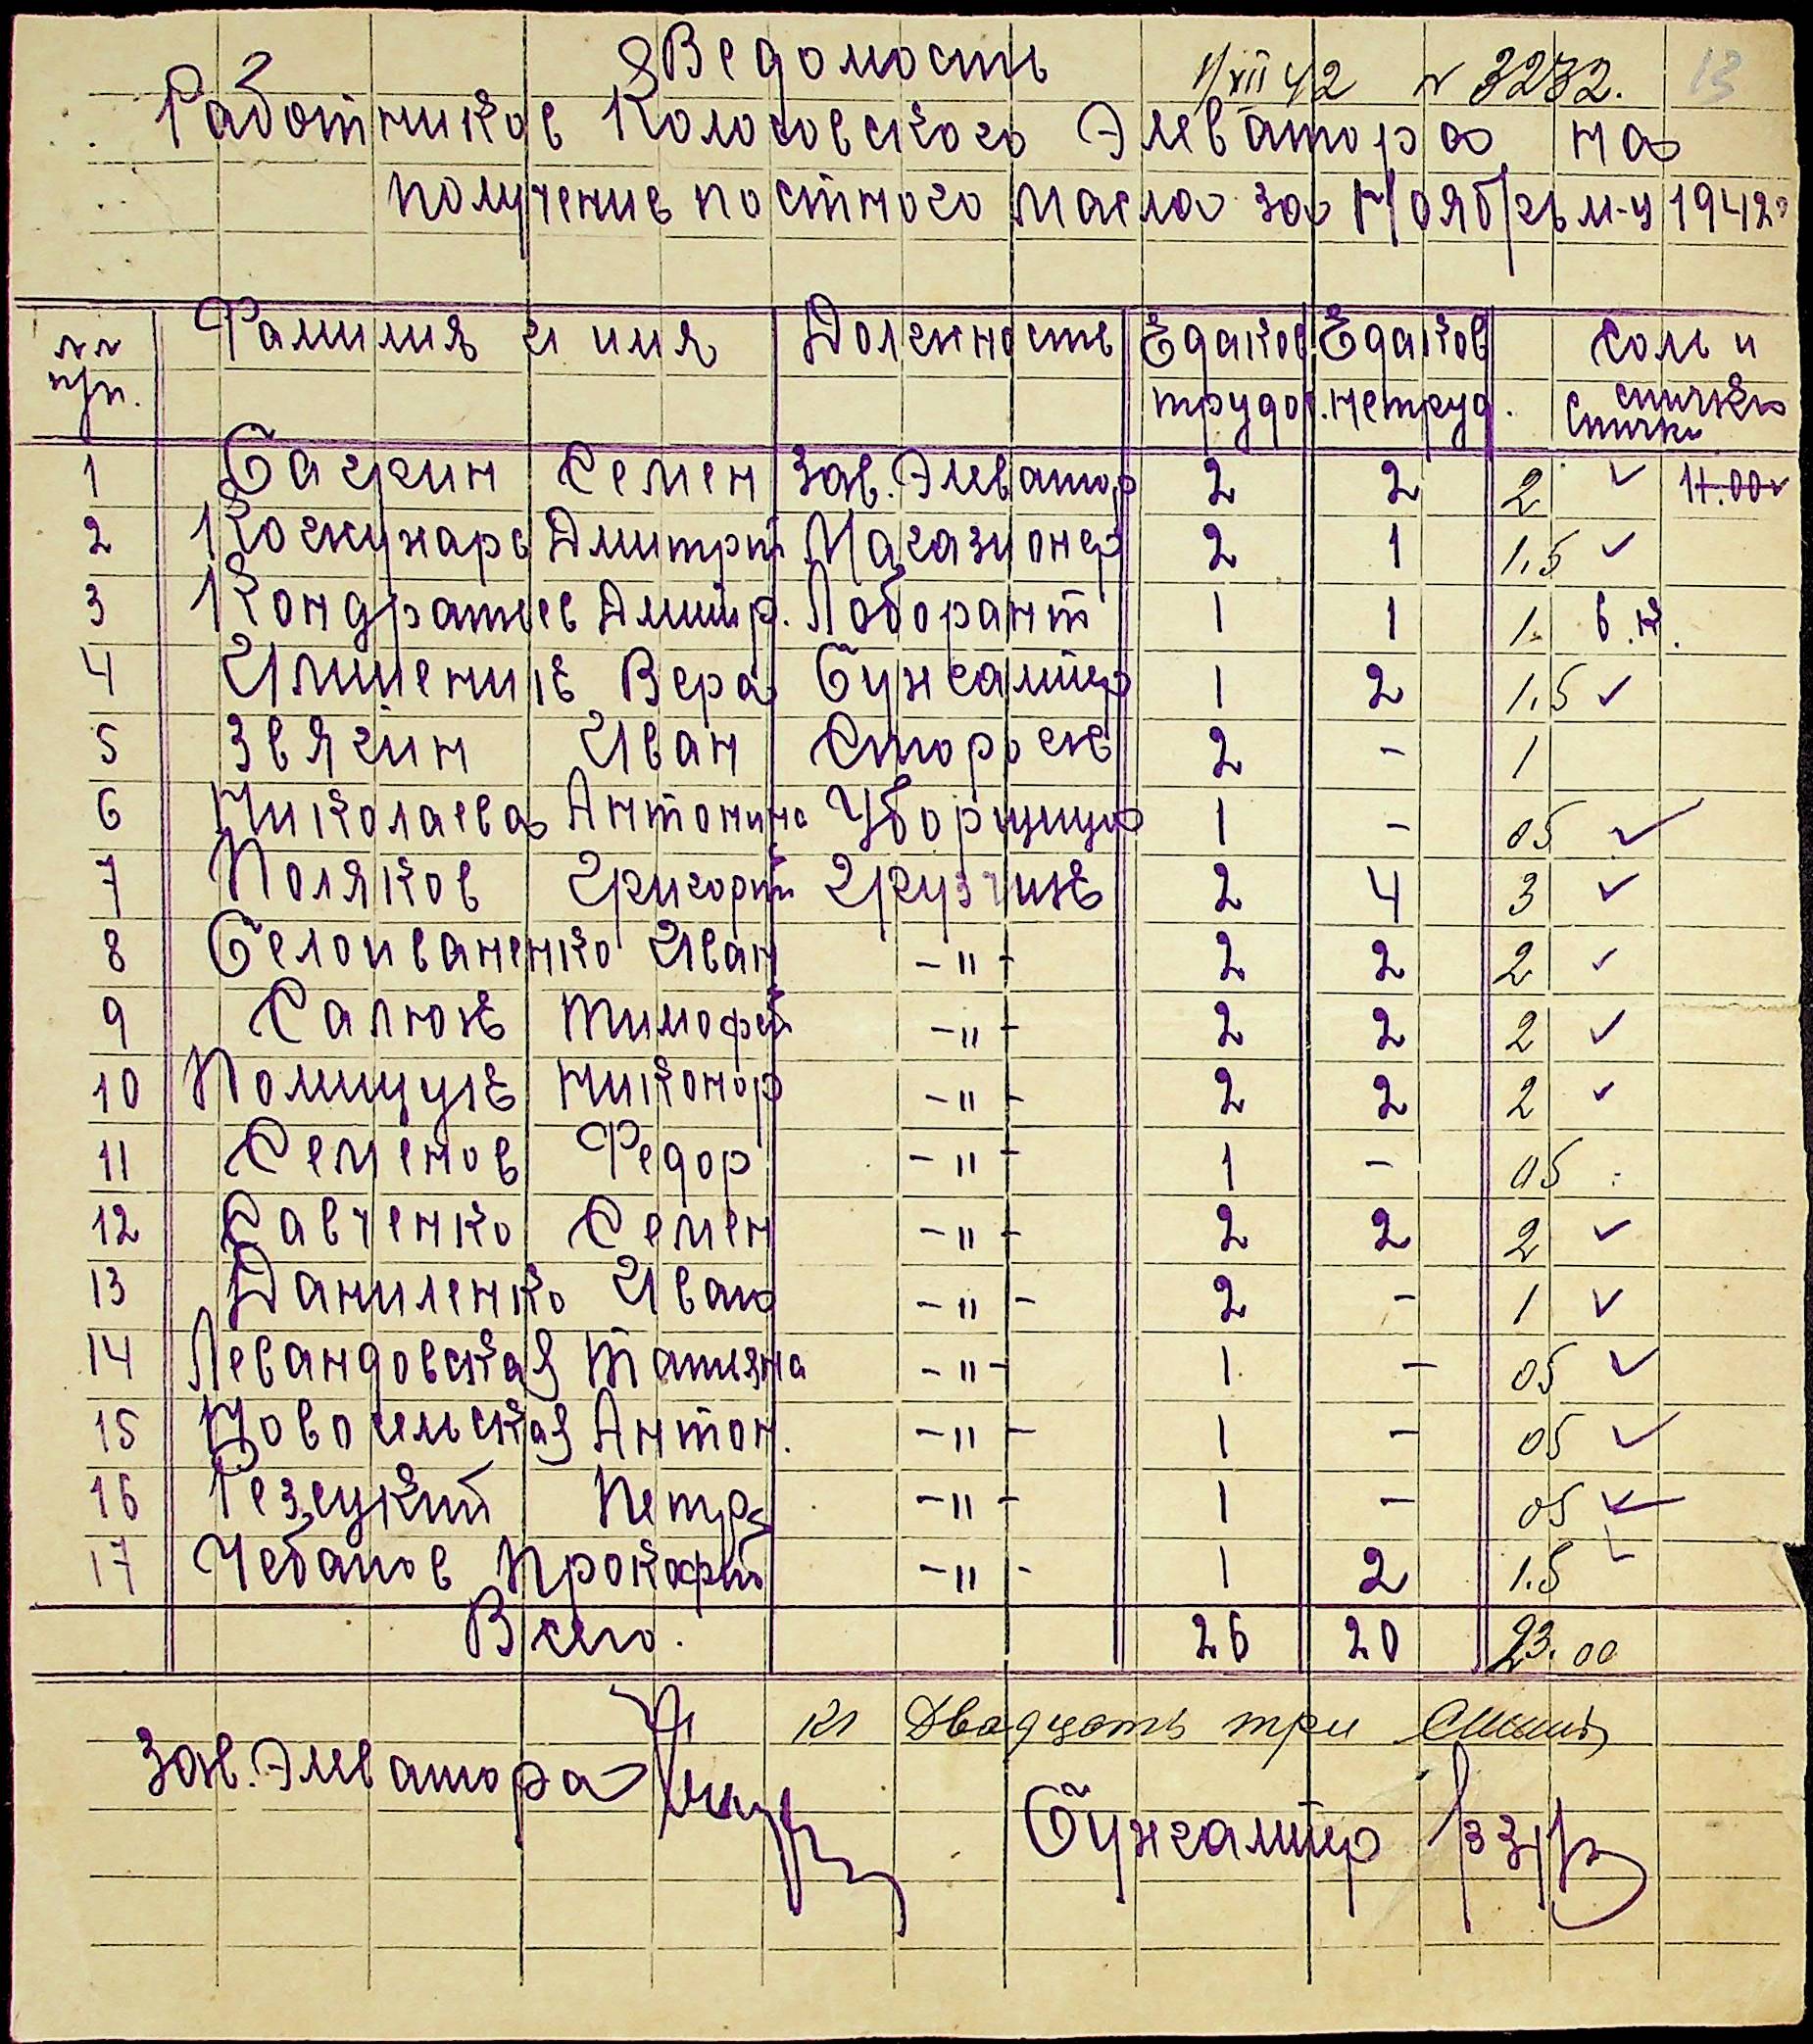 Ведомость 1/XII 42 N 3232. 13
Работников Колосовского Элеватора на
получение постного масла за Ноябрь м-ц 1942г
NN п/п. Фамилия и имя Должность Едаков трудос. Едаков нетруд. Соль и спички Спички
1 Баскин Семен Зав. Элеватор 2 2 2 ✓ 11.00
2 Кожухарь Дмитрий Магазионер 2 1 1.5 ✓
3 Кондратьев Дмитр. Лоборант 1 1 1. 6.к.
4 Вера Бухгалтер 1 2 1.5 ✓
5 Звягин Иван Сторож 2 - 1
6 Николаева Антонина Уборщица 1 - 05 ✓
7 Поляков Григорий Грузчик 2 4 3 ✓
8 Белоиваненко Иван -"- 2 2 2 ✓
9 Салюк Тимофей -"- 2 2 2 ✓
10 Полищук Никонор -"- 2 2 2 ✓
11 Семенов Федор -"- 1 - 05
12 Савченко Семен -"- 2 2 2 ✓
13 Даниленко Иван -"- 2 - 1 ✓
14 Левандовская Татияна -"- 1. - 05 ✓
15 Новосельская Антон. -"- 1 - 05 ✓
16 Резецкий Петр -"- 1 - 05 ✓
17 Чебанов Прокофий -"- 1 2 1.5 ✓
Всего. 26 20 23.00
кг Двадцать три
Зав. Элеватора
Бухгалтер